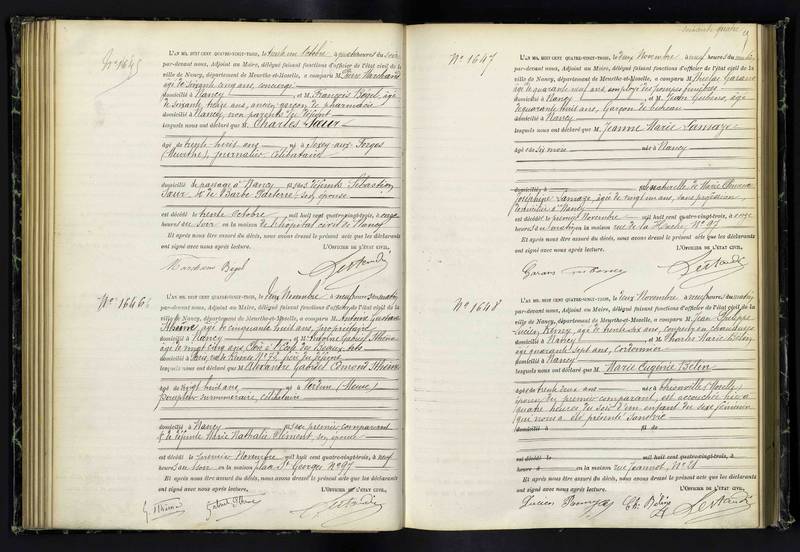 soixante quatre
No 1645
L'AN MIL HUIT CENT QUATRE-VINGT-TROIS, le trente un Octobre à quatre heures du soir
par-devant nous, Adjoint au Maire, délégué faisant fonctions d'officier de l'état civil de la
ville de Nancy, département de Meurthe-et-Moselle, a comparu M. Pierre Marchand
âgé de soixante cinq ans, concierge
domicilié à Nancy et M. François Bogel, âgé
de soixante treize ans, ancien garçon de pharmacie
domicilié à Nancy, non parents du défunt
lesquels nous ont déclaré que M. Charles Sœur
âgé de trente huit ans né à Sexey aux Forges
(Meurthe), journalier Célibataire
domicilié de passage à Nancy fils du défunt Sébastien
Sœur, et de Barbe son épouse
est décédé le trente Octobre mil huit cent quatre-vingt-trois, à onze
heures du soir en la maison de l'hôpital civil de Nancy
Et après nous être assuré du décès, nous avons dressé le présent acte que les déclarants
ont signé avec nous après lecture. L'OFFICIER DE L'ÉTAT CIVIL,
Marchand Bogel
No 1646
L'AN MIL HUIT CENT QUATRE-VINGT-TROIS, le deux Novembre à neuf heures du matin
par-devant nous, Adjoint au Maire, délégué faisant fonctions d'officier de l'état civil de la
ville de Nancy, département de Meurthe-et-Moselle, a comparu M. Antoine Gustave
Thiéme, âgé de cinquante huit ans, propriétaire
domicilié à Nancy et M. Antoine Gabriel
âgé de vingt cinq ans, Elève à l'Ecole des Beaux Arts
domicilié à Paris, rue de Rennes No 72, frère du défunt
lesquels nous ont déclaré que M. Alexandre Gabriel
âgé de vingt huit ans né à Verdun (Meuse)
surnuméraire, célibataire
domicilié à Nancy fils du premier comparant
et de défunte Marie Nathalie Clément, son épouse
est décédé le premier Novembre mil huit cent quatre-vingt-trois, à neuf
heures du soir en la maison place St Georges No 97
Et après nous être assuré du décès, nous avons dressé le présent acte que les déclarants
ont signé avec nous après lecture. L'OFFICIER DE L'ÉTAT CIVIL,
No 1647
L'AN MIL HUIT CENT QUATRE-VINGT-TROIS, le deux Novembre à neuf heures du matin
par-devant nous, Adjoint au Maire, délégué faisant fonctions d'officier de l'état civil de la
ville de Nancy, département de Meurthe-et-Moselle, a comparu M. Nicolas
âgé de quarante neuf ans, employé des pompes funèbres
domicilié à Nancy et M. Jean âgé
de quarante huit ans, Garçon de bureau
domicilié à Nancy
lesquels nous ont déclaré que M. Jeanne Marie Lamaze
âgée de six mois née à Nancy
domicilié à fille naturelle de Marie
Joséphine Lamaze, âgée de vingt un ans, sans profession,
domiciliée à Nancy
est décédé le premier Novembre mil huit cent quatre-vingt-trois, à onze
heures du matin en la maison rue de la Hache No 97
Et après nous être assuré du décès, nous avons dressé le présent acte que les déclarants
ont signé avec nous après lecture. L'OFFICIER DE L'ÉTAT CIVIL,
No 1648
L'AN MIL HUIT CENT QUATRE-VINGT-TROIS, le deux Novembre à neuf heures du matin
par-devant nous, Adjoint au Maire, délégué faisant fonctions d'officier de l'état civil de la
ville de Nancy, département de Meurthe-et-Moselle, a comparu M. Jean Philippe
Lucien Remy, âgé de trente six ans, coupeur en chaussures
domicilié à Nancy et M. Charles Marie Belin,
âgé quarante sept ans, Cordonnier
domicilié à Nancy
lesquels nous ont déclaré que M. Marie Eugénie Belin
âgée de trente deux ans née à Thionville (Moselle)
épouse du premier comparant, est accouchée hier à
quatre heures du soir d'un enfant du sexe féminin
qui nous a été présenté sans vie
domicilié à fl de
est décédé le mil huit cent quatre-vingt-trois, à
heure à en la maison rue Jeannot, No 21
Et après nous être assuré du décès, nous avons dressé le présent acte que les déclarants
ont signé avec nous après lecture. L'OFFICIER DE L'ÉTAT CIVIL,
Lucien Remy Ch. Belin